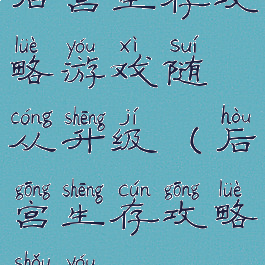 后宫生存攻
lüè yóu xì suí
略游戏随
cóng shēng jí hòu
从升级（后
gōng shēng cún gōng lüè
宫生存攻略
shǒu yóu